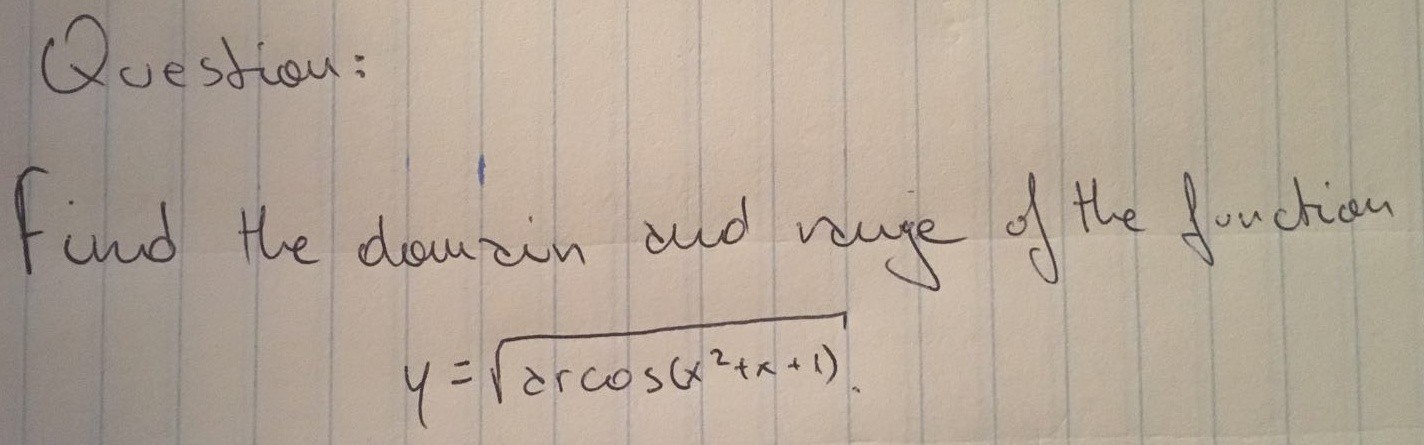 Question:
Find the domain and range of the function
y = √arcos(x²+x+1).